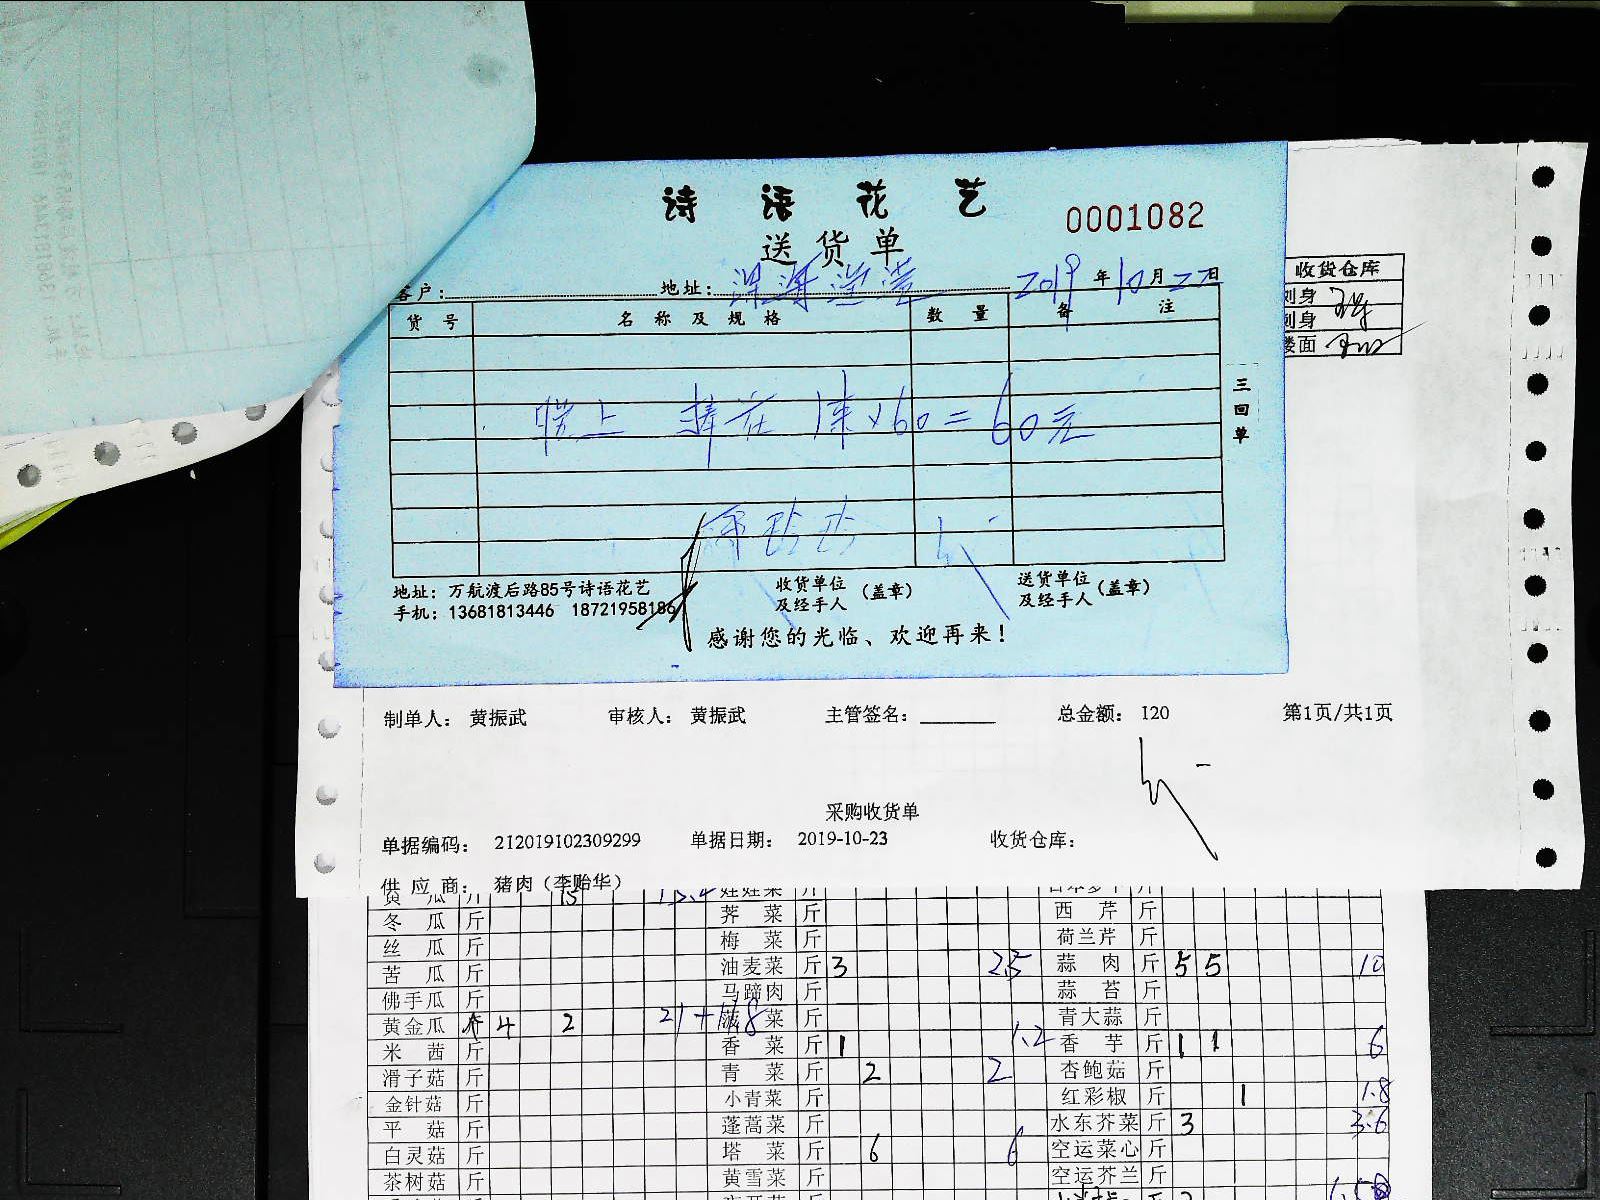 诗语花艺
0001082
送货单
客户： 地址： 2019年10月22日
货号 名称及规格 数量 备注
捧花 1束×60=60元
三回单
地址：万航渡后路85号诗语花艺
手机：13681813446 18721958186
收货单位及经手人（盖章）
送货单位及经手人（盖章）
感谢您的光临、欢迎再来！
收货仓库
到身
到身
楼面
制单人： 黄振武 审核人： 黄振武 主管签名： 总金额： 120 第1页/共1页
采购收货单
单据编码： 212019102309299 单据日期： 2019-10-23 收货仓库：
供应商： 猪肉（李贻华）
黄瓜 斤 15 娃娃菜 斤
冬瓜 斤 荠菜 斤 西芹 斤
丝瓜 斤 梅菜 斤 荷兰芹 斤
苦瓜 斤 油麦菜 斤 3 25 蒜肉 斤 5 5 10
佛手瓜 斤 马蹄肉 斤 蒜苔 斤
黄金瓜 4 2 菠菜 斤 青大蒜 斤
米茜 斤 香菜 斤 1 1.2 香芋 斤 1 1 6
滑子菇 斤 青菜 斤 2 2 杏鲍菇 斤
金针菇 斤 小青菜 斤 红彩椒 斤 1 1.8
平菇 斤 蓬蒿菜 斤 水东芥菜 斤 3 3.6
白灵菇 斤 塔菜 斤 6 6 空运菜心 斤
茶树菇 斤 黄雪菜 斤 空运芥兰 斤